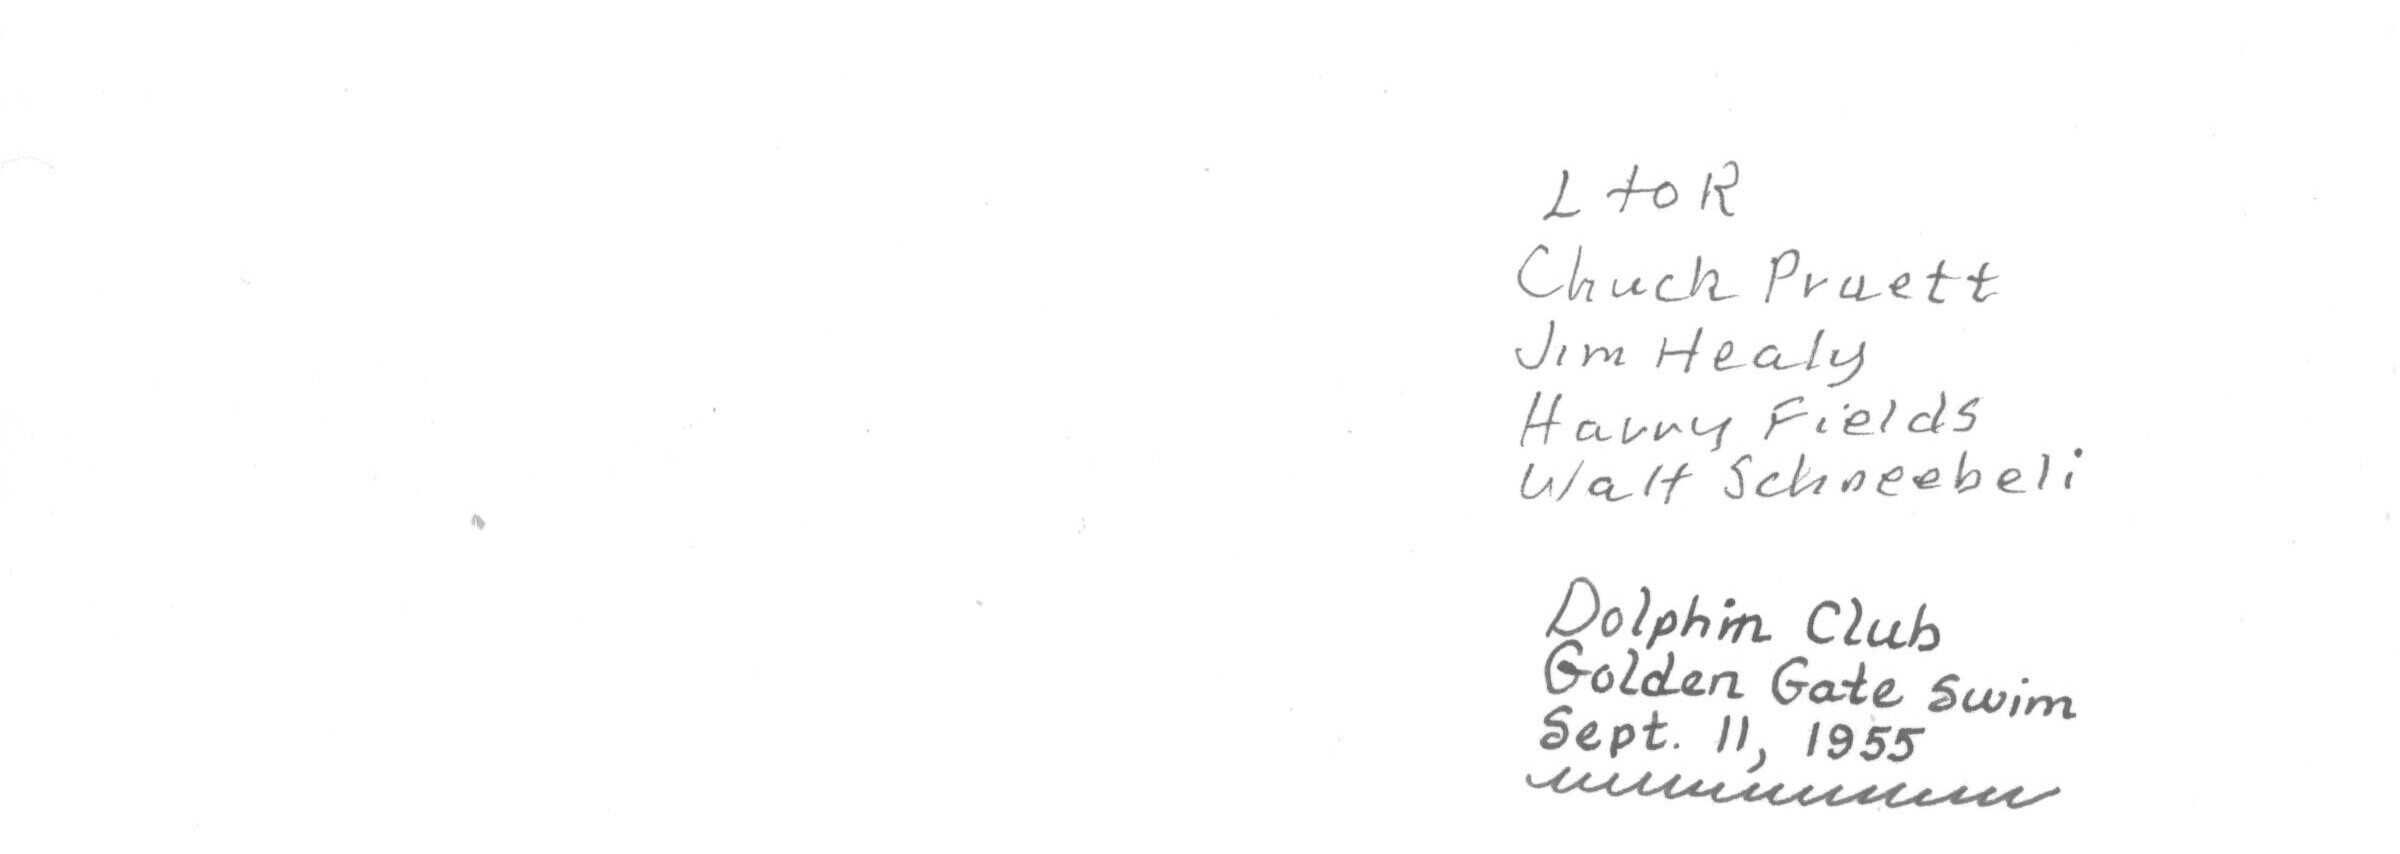 L to R
Chuck Pruett
Jim Healy
Harry Fields
Walt Schneebeli
Dolphin Club
Golden Gate Swim
Sept. 11, 1955